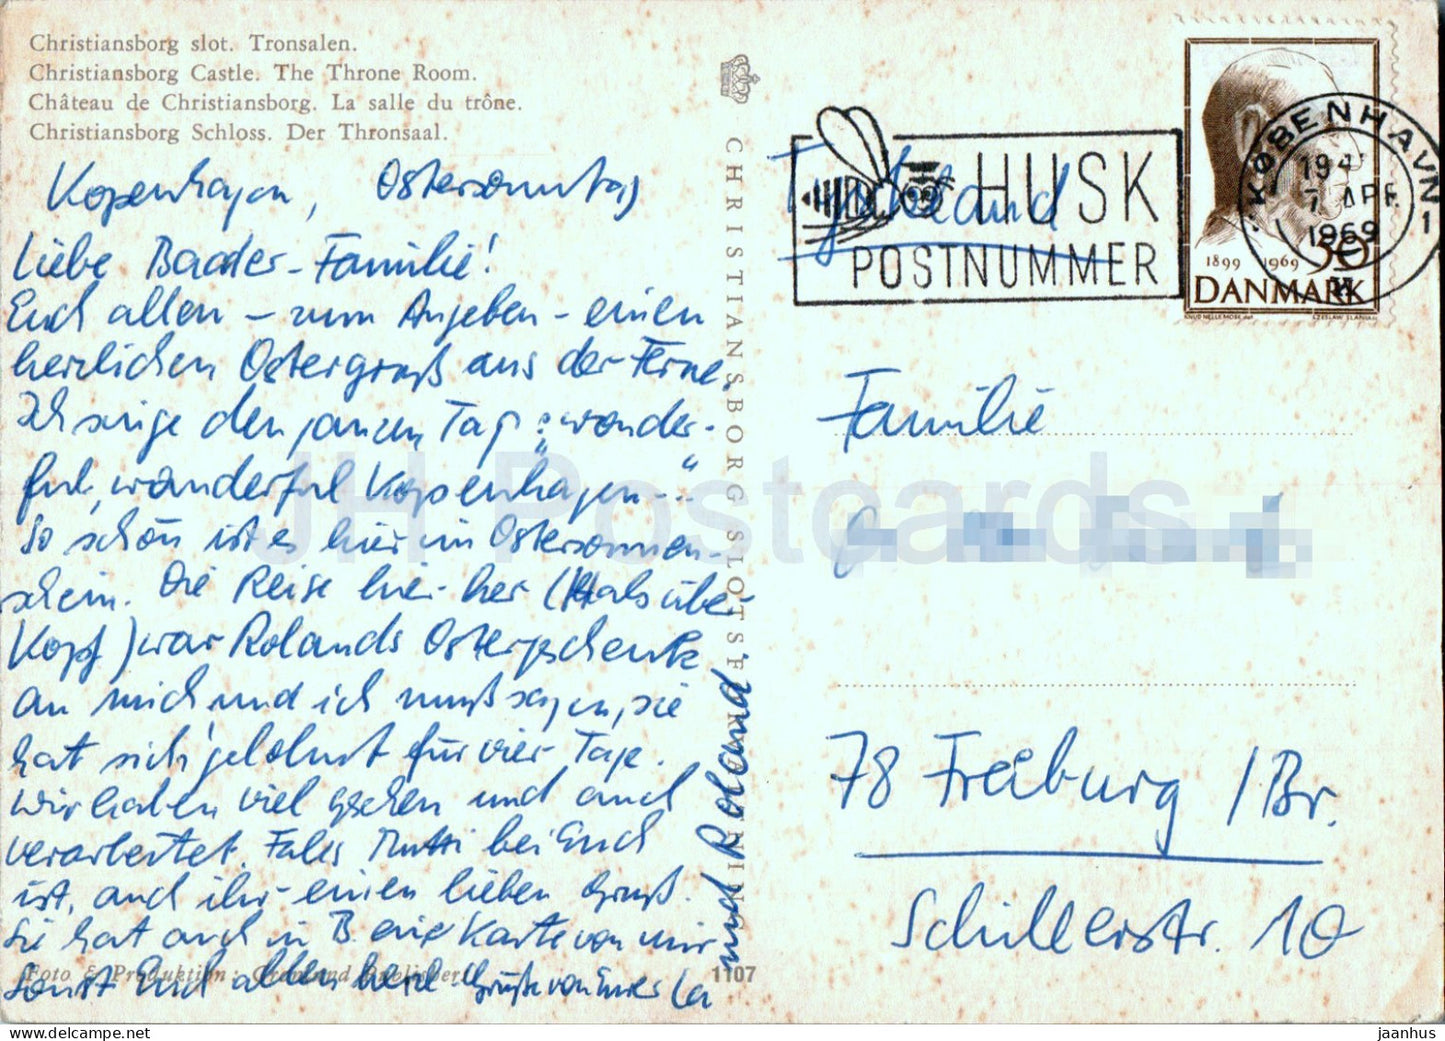 Christiansborg slot. Tronsalen.
Christiansborg Castle. The Throne Room.
Château de Christiansborg. La salle du trône.
Christiansborg Schloss. Der Thronsaal.
Kopenhagen, Ostersonntag
Liebe Baader-Familie!
Euch allen – zum Angeben – einen
herzlichen Ostergruß aus der Ferne.
Ich singe den ganzen Tag: „wonder-
ful, wonderful Kopenhagen --“
So schön ist es hier im Ostersonnen-
schein. Die Reise hier-her (Hals über
Kopf) war Rolands Ostergeschenk
an mich und ich muß sagen, sie
hat sich gelohnt für vier Tage.
Wir haben viel gesehen und auch
verarbeitet. Falls Mutti bei Euch
ist, auch ihr einen lieben Gruß.
Sie hat auch in B. eine Karte von mir
sonst Euch allen herzl. Grüße von Eurer
und Roland.
Foto & Produktion: Grønlund
1107
CHRISTIANSBORG SLOTS
Tyskland
HUSK
POSTNUMMER
KØBENHAVN
7 APR
1969
1899 1969
DANMARK
CZESLAW SLANIA
Familie
78 Freiburg / Br.
Schillerstr. 10
JH Postcards
jaanhus
delcampe.net